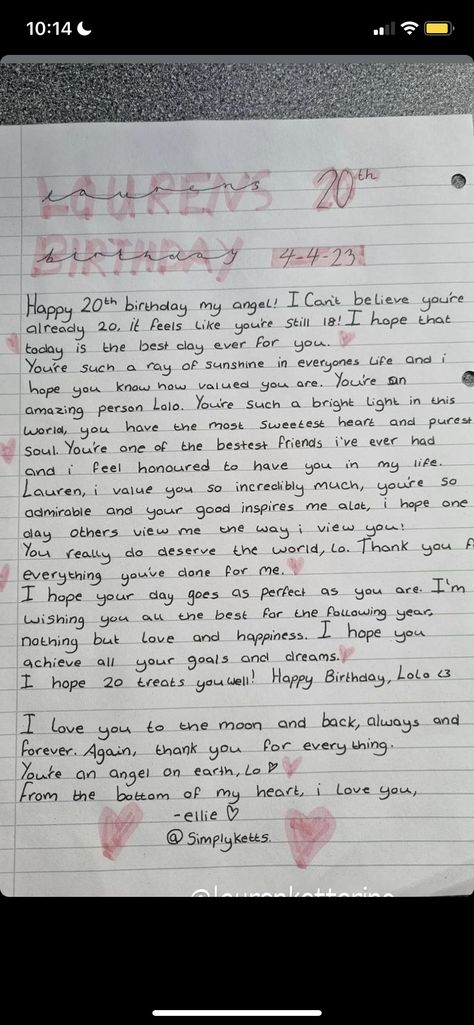 10:14
Laurens 20th
birthday 4-4-23
Happy 20th birthday my angel! I Can't believe you're
already 20, it feels like you're still 18! I hope that
today is the best day ever for you.
You're such a ray of sunshine in everyones life and i
hope you know how valued you are. You're an
amazing person Lolo. You're such a bright light in this
world, you have the most sweetest heart and purest
soul. You're one of the bestest friends i've ever had
and i feel honoured to have you in my life.
Lauren, i value you so incredibly much, you're so
admirable and your good inspires me alot, i hope one
day others view me the way i view you!
You really do deserve the world, Lo. Thank you
everything you've done for me.
I hope your day goes as perfect as you are. I'm
wishing you all the best for the following year,
nothing but love and happiness. I hope you
achieve all your goals and dreams.
I hope 20 treats you well! Happy Birthday, Lolo <3
I love you to the moon and back, always and
forever. Again, thank you for everything.
You're an angel on earth, Lo ♡
From the bottom of my heart, i love you,
-ellie ♡
@Simplyketts.